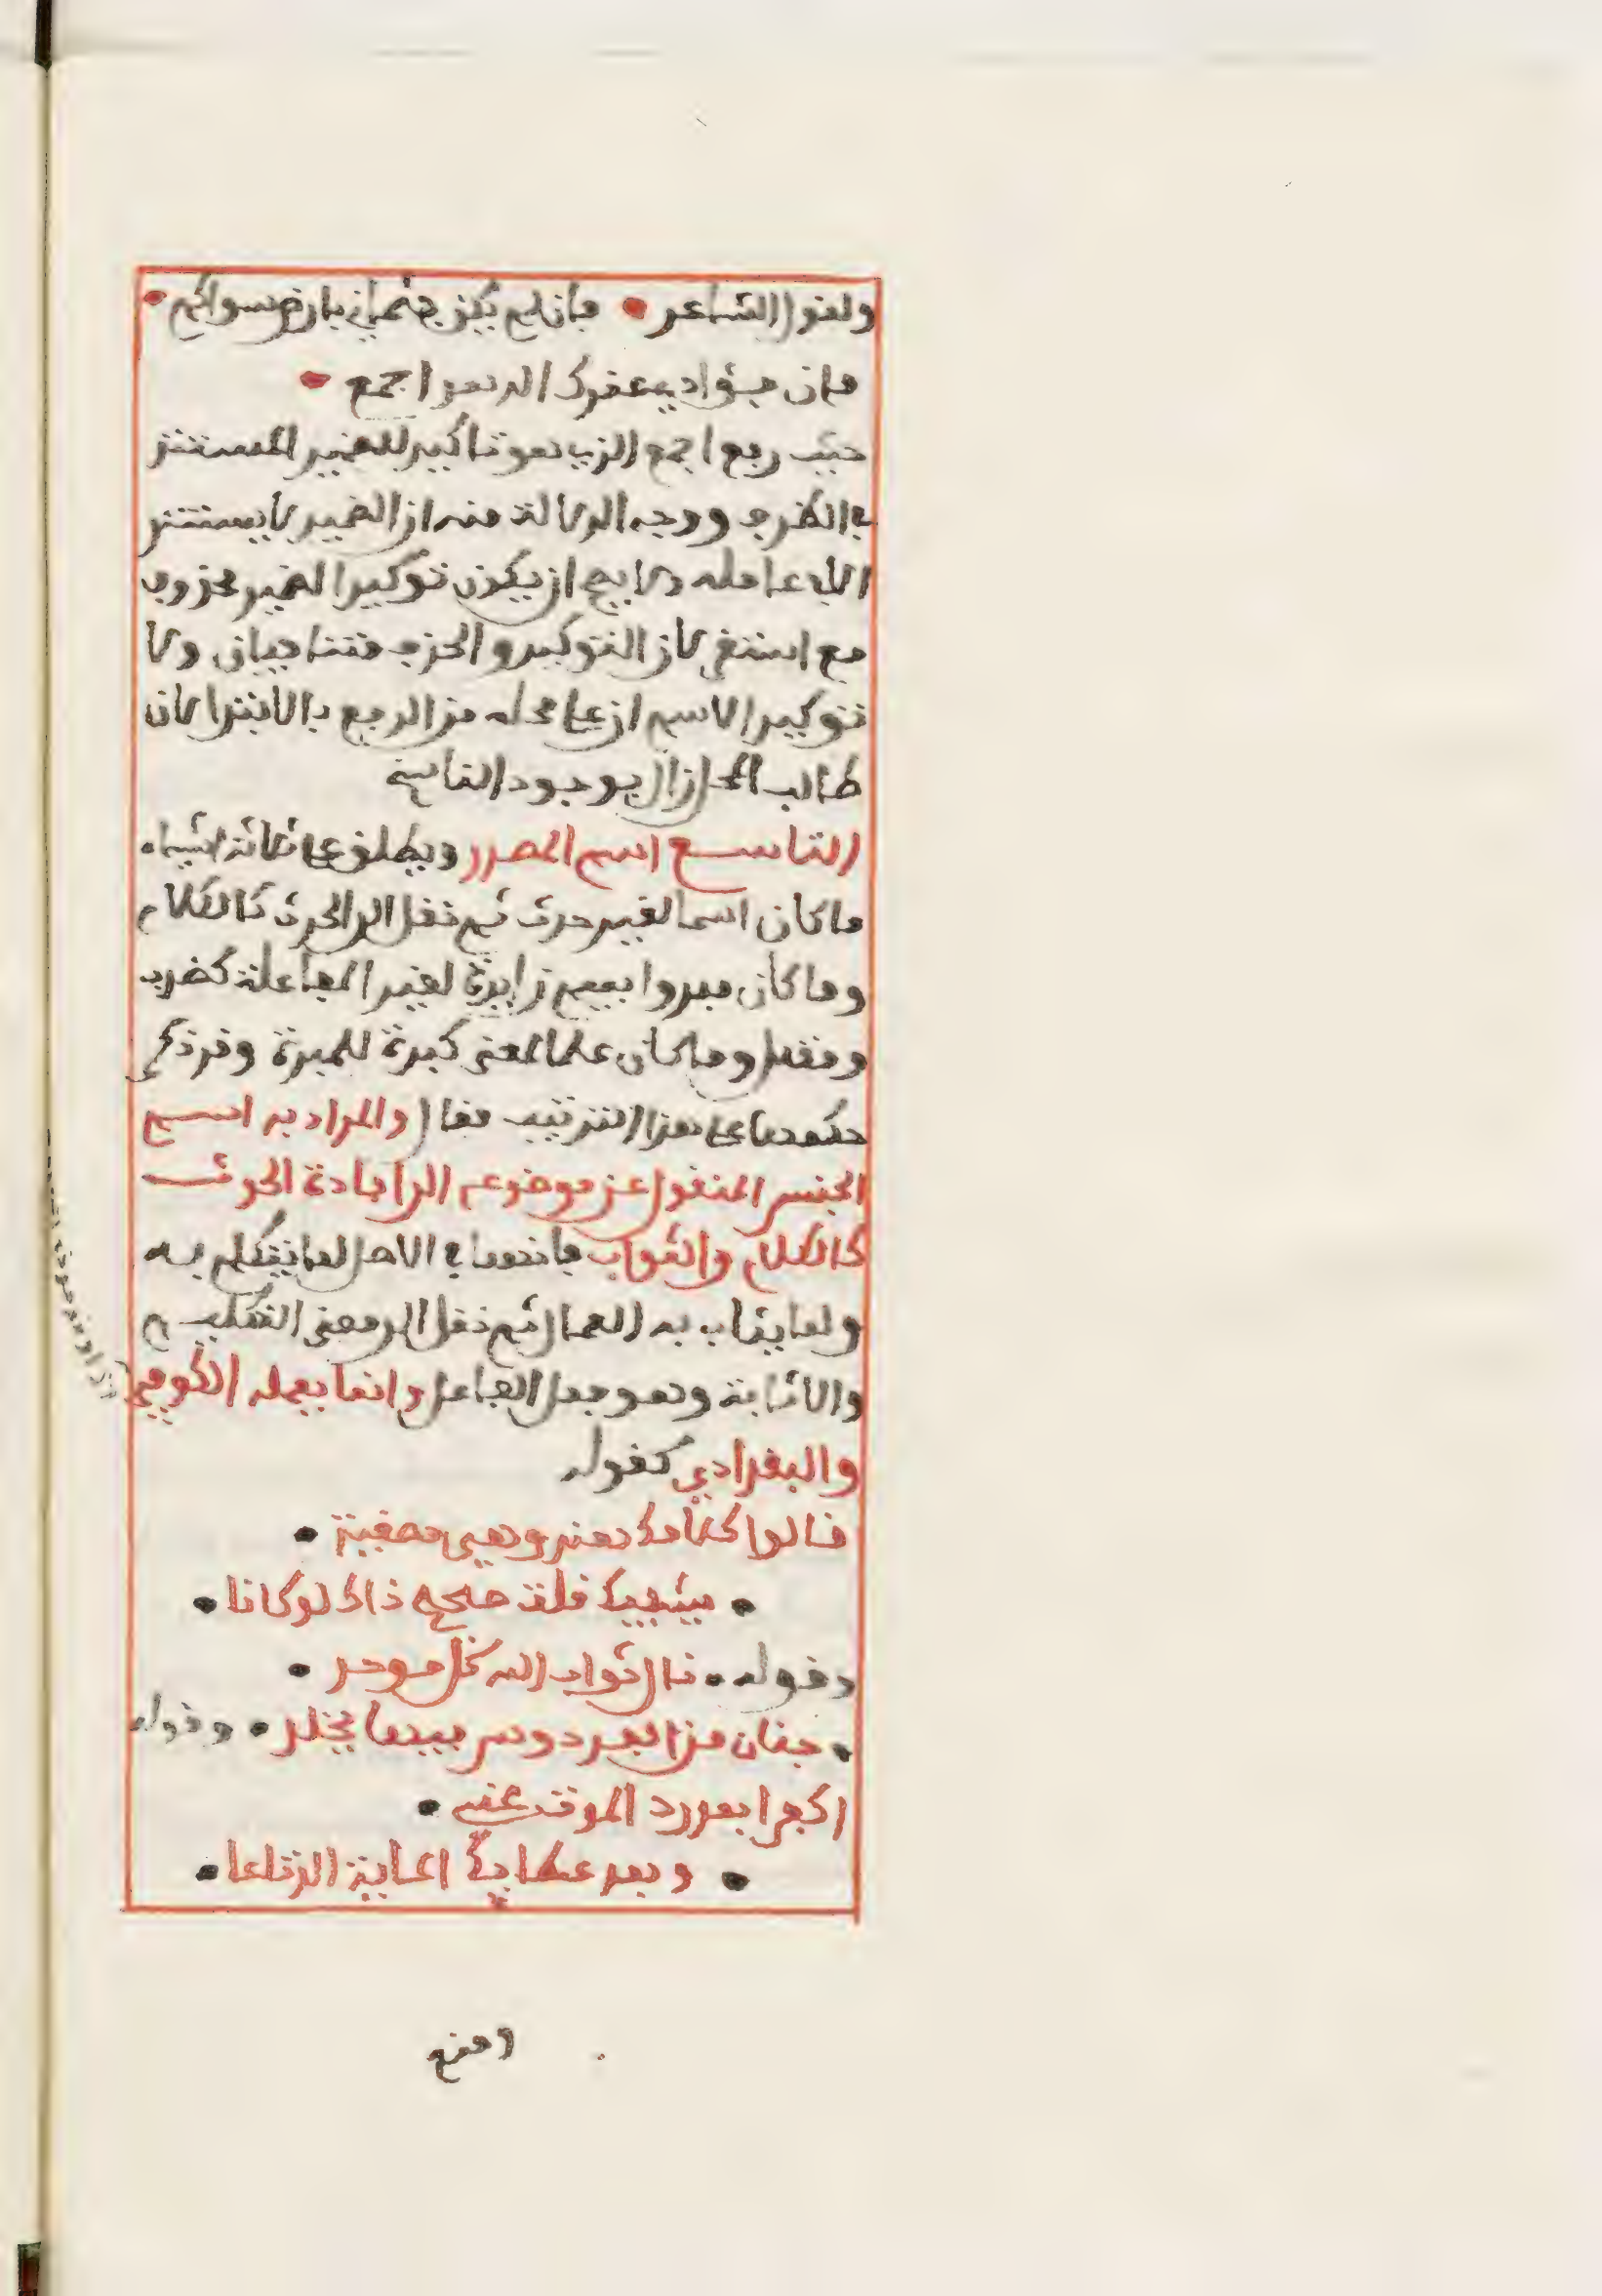 ولقول الشاعر • فإن يك جثماني بأرض سواكم •
فإن فؤادي عندك الدهر اجمع •
حيث رفع اجمع الذي هو تاكيد للضمير المستتر
في الظرف ووجه الدلالة منه ان الضمير لا يستتر
الا في عامله ولا يصح ان يكون توكيدا لضمير محذوف
مع استقر لان التوكيد والحذف متنافيان ولا
توكيد الاسم ان على محله من الرفع بالابتدا لان
طالب المحل زال بوجود الناسخ
التاسع اسم المصدر ويطلق على ثلاثة اشياء
ما كان اسما لغير حدث ثم نقل الى الحدث كالكلام
وما كان مبدوا بميم زايدة لغير المفاعلة كمضرب
ومقتل وما كان علما لمعنى كبرة للمبرة وقد ذكر
حكمها على هذا الترتيب فقال والمراد به اسم
الجنس المنقول عن موضوعه الى افادة الحدث
كالكلام والثواب فانهما في الاصل لما يتكلم به
ولما يثاب به العمال ثم نقل الى معنى التكليم
والاثابة وهو فعل الفاعل وانما يعمله الكوفي
والبغدادي كقوله
قالوا كلامك هندا وهي مصغية •
• يشفيك قلت صحيح ذاك لو كانا •
وقوله • فان ثواب الله كل موحد •
• جنان من الفردوس فيها يخلد • وقوله
اكفرا بعد رد الموت عني •
• وبعد عطايك الماية الرتاعا •